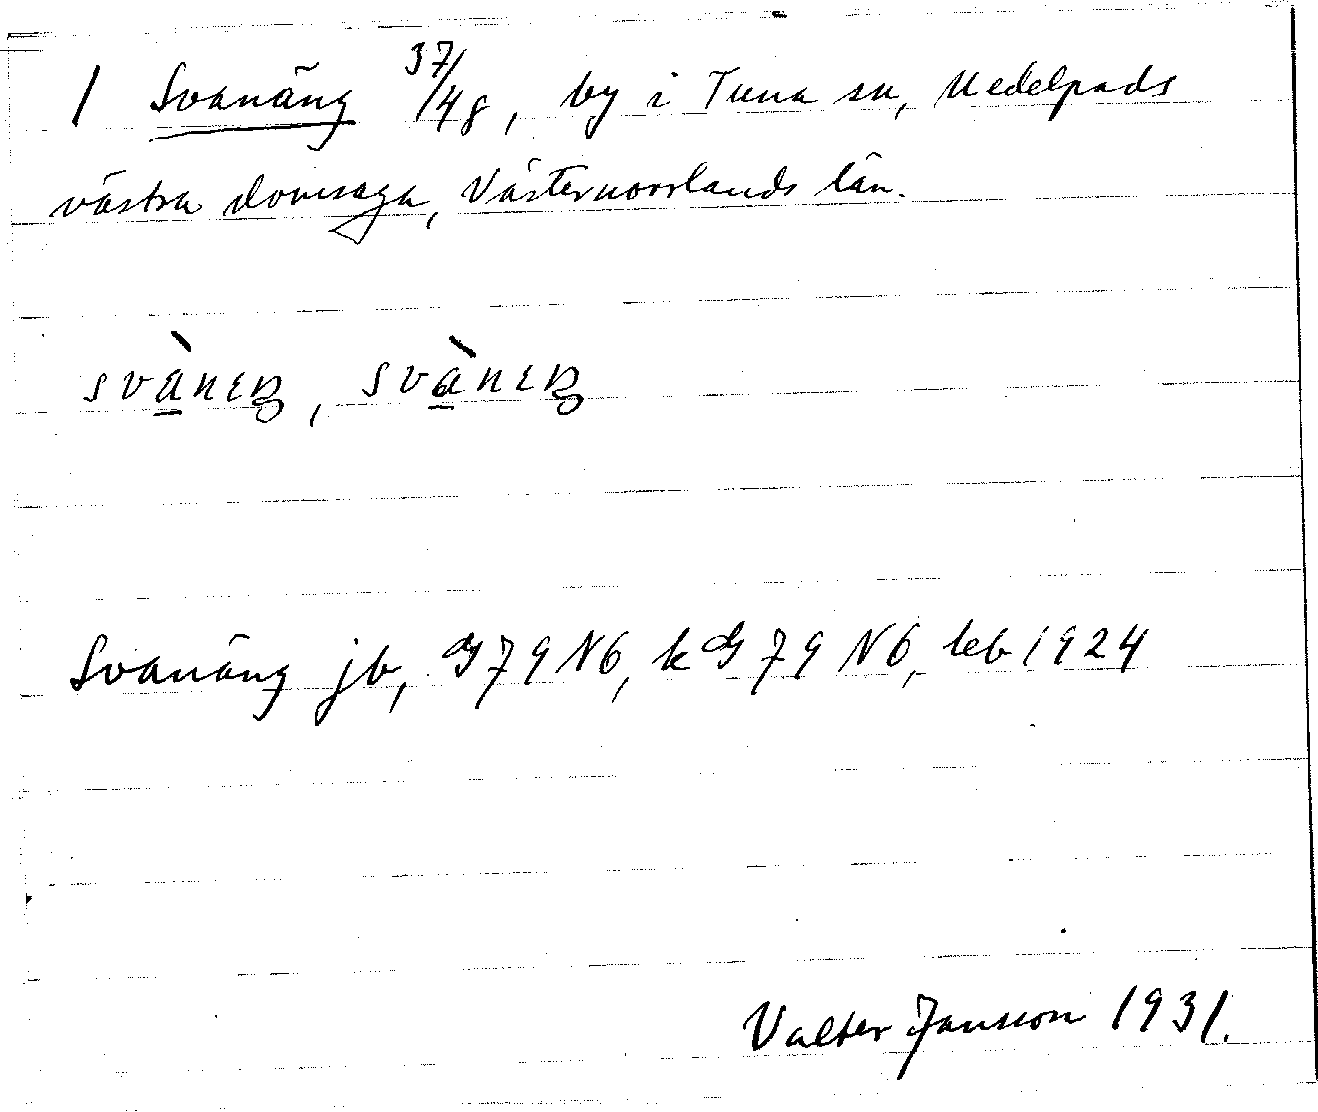 1 Svanäng 37/48, by i Tuna sn, Medelpads
västra domsaga, Västernorrlands län.
svànɛŋ, svànɛŋ
Svanäng jb, G79N6, kG79N6, leb 1924
Valter Jansson 1931.